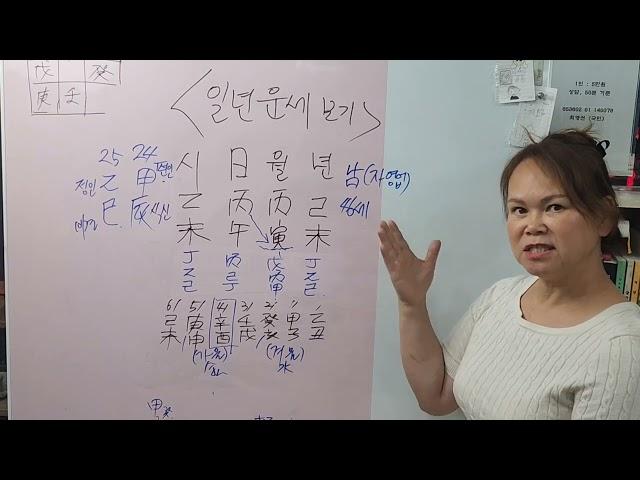 戊 癸
庚 壬
<일년운세 보기>
1인 : 5만원
상담, 50분 기준
25 24 시 日 월 년 남(자영업)
정인 乙 甲 편인 乙 丙 丙 己 46세
巳 辰 식신 未 午 寅 未
丁 丙 戊 丁
乙 己 丙 乙
己 丁 甲 己
61 51 41 31 21 11 1
己 庚 辛 壬 癸 甲 乙
未 申 酉 戌 亥 子 丑
(가을) (겨울)
水
甲